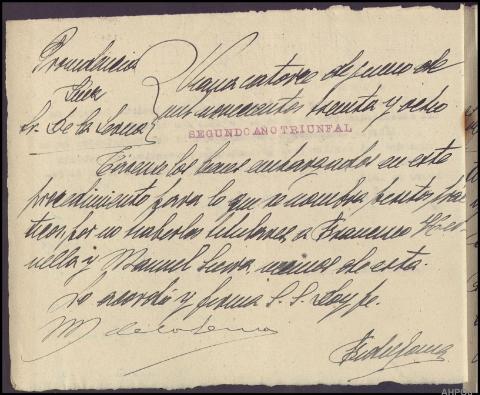 Providencia
Juez
Sr. De la Serna
catorce de junio de
mil novecientos treinta y ocho
SEGUNDO AÑO TRIUNFAL
los bienes embargados en este
procedimiento para lo que se nombra peritos prac
ticos, por no haberlos titulares a Francisco
y Manuel vecinos de esta.
Lo acordó y firma S. S. Doy fe.
M de la Serna
AHPGU